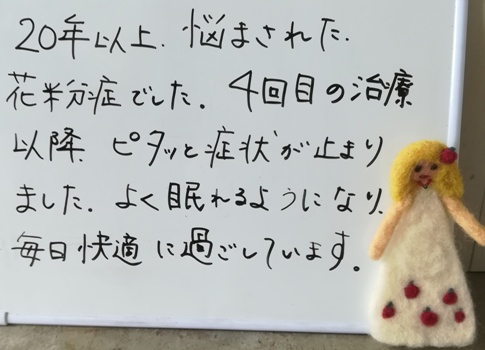 20年以上、悩まされた
花粉症でした。4回目の治療
以降、ピタッと症状が止まり
ました。よく眠れるようになり、
毎日快適に過ごしています。